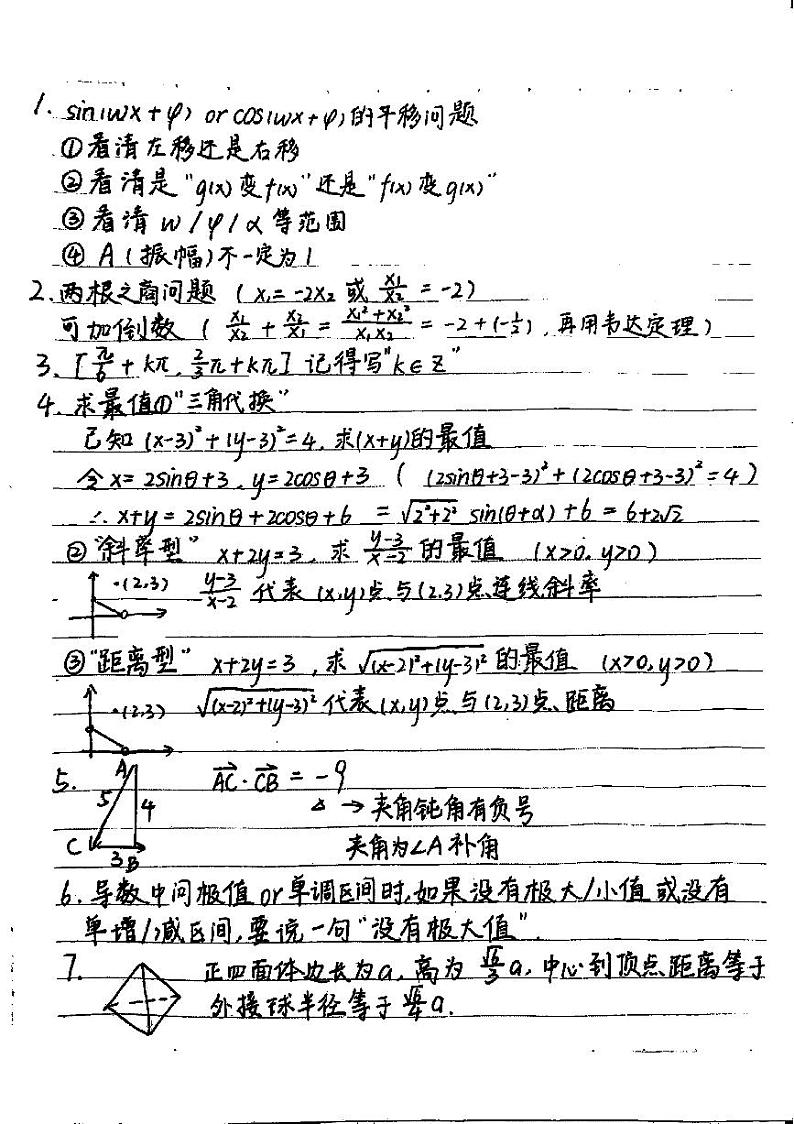 1. sin(wx+φ) or cos(wx+φ)的平移问题
①看清左移还是右移
②看清是"g(x)变f(x)"还是"f(x)变g(x)"
③看清w/φ/α等范围
④A(振幅)不一定为1
2.两根之商问题 (x₁=-2x₂或x₁/x₂=-2)
可加倒数 (x₁/x₂+x₂/x₁=(x₁²+x₂²)/(x₁x₂)=-2+(-1/2),再用韦达定理)
3. [π/6+kπ,2/3π+kπ] 记得写"k∈Z"
4.求最值①"三角代换"
已知(x-3)²+(y-3)²=4,求(x+y)的最值
令x=2sinθ+3,y=2cosθ+3 ((2sinθ+3-3)²+(2cosθ+3-3)²=4)
∴x+y=2sinθ+2cosθ+6=√(2²+2²) sin(θ+α)+6=6+2√2
②"斜率型" x+2y=3,求(y-3)/(x-2)的最值 (x>0,y>0)
·(2,3) (y-3)/(x-2)代表(x,y)点与(2,3)点连线斜率
③"距离型" x+2y=3,求√((x-2)²+(y-3)²)的最值 (x>0,y>0)
·(2,3) √((x-2)²+(y-3)²)代表(x,y)点与(2,3)点距离
5. A 5 4 C 3 B AC·CB=-9
△→夹角钝角有负号
夹角为∠A补角
6.导数中问极值or单调区间时,如果没有极大/小值或没有
单增/减区间,要说一句"没有极大值".
7. 正四面体边长为a,高为√6/3 a,中心到顶点距离等于
外接球半径等于√6/4 a.